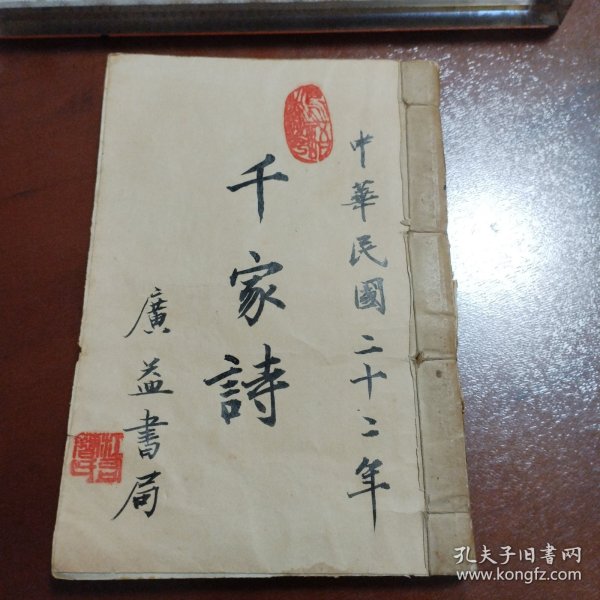 中華民國二十二年
千家詩
廣益書局
孔夫子旧書网
www.kongfz.com